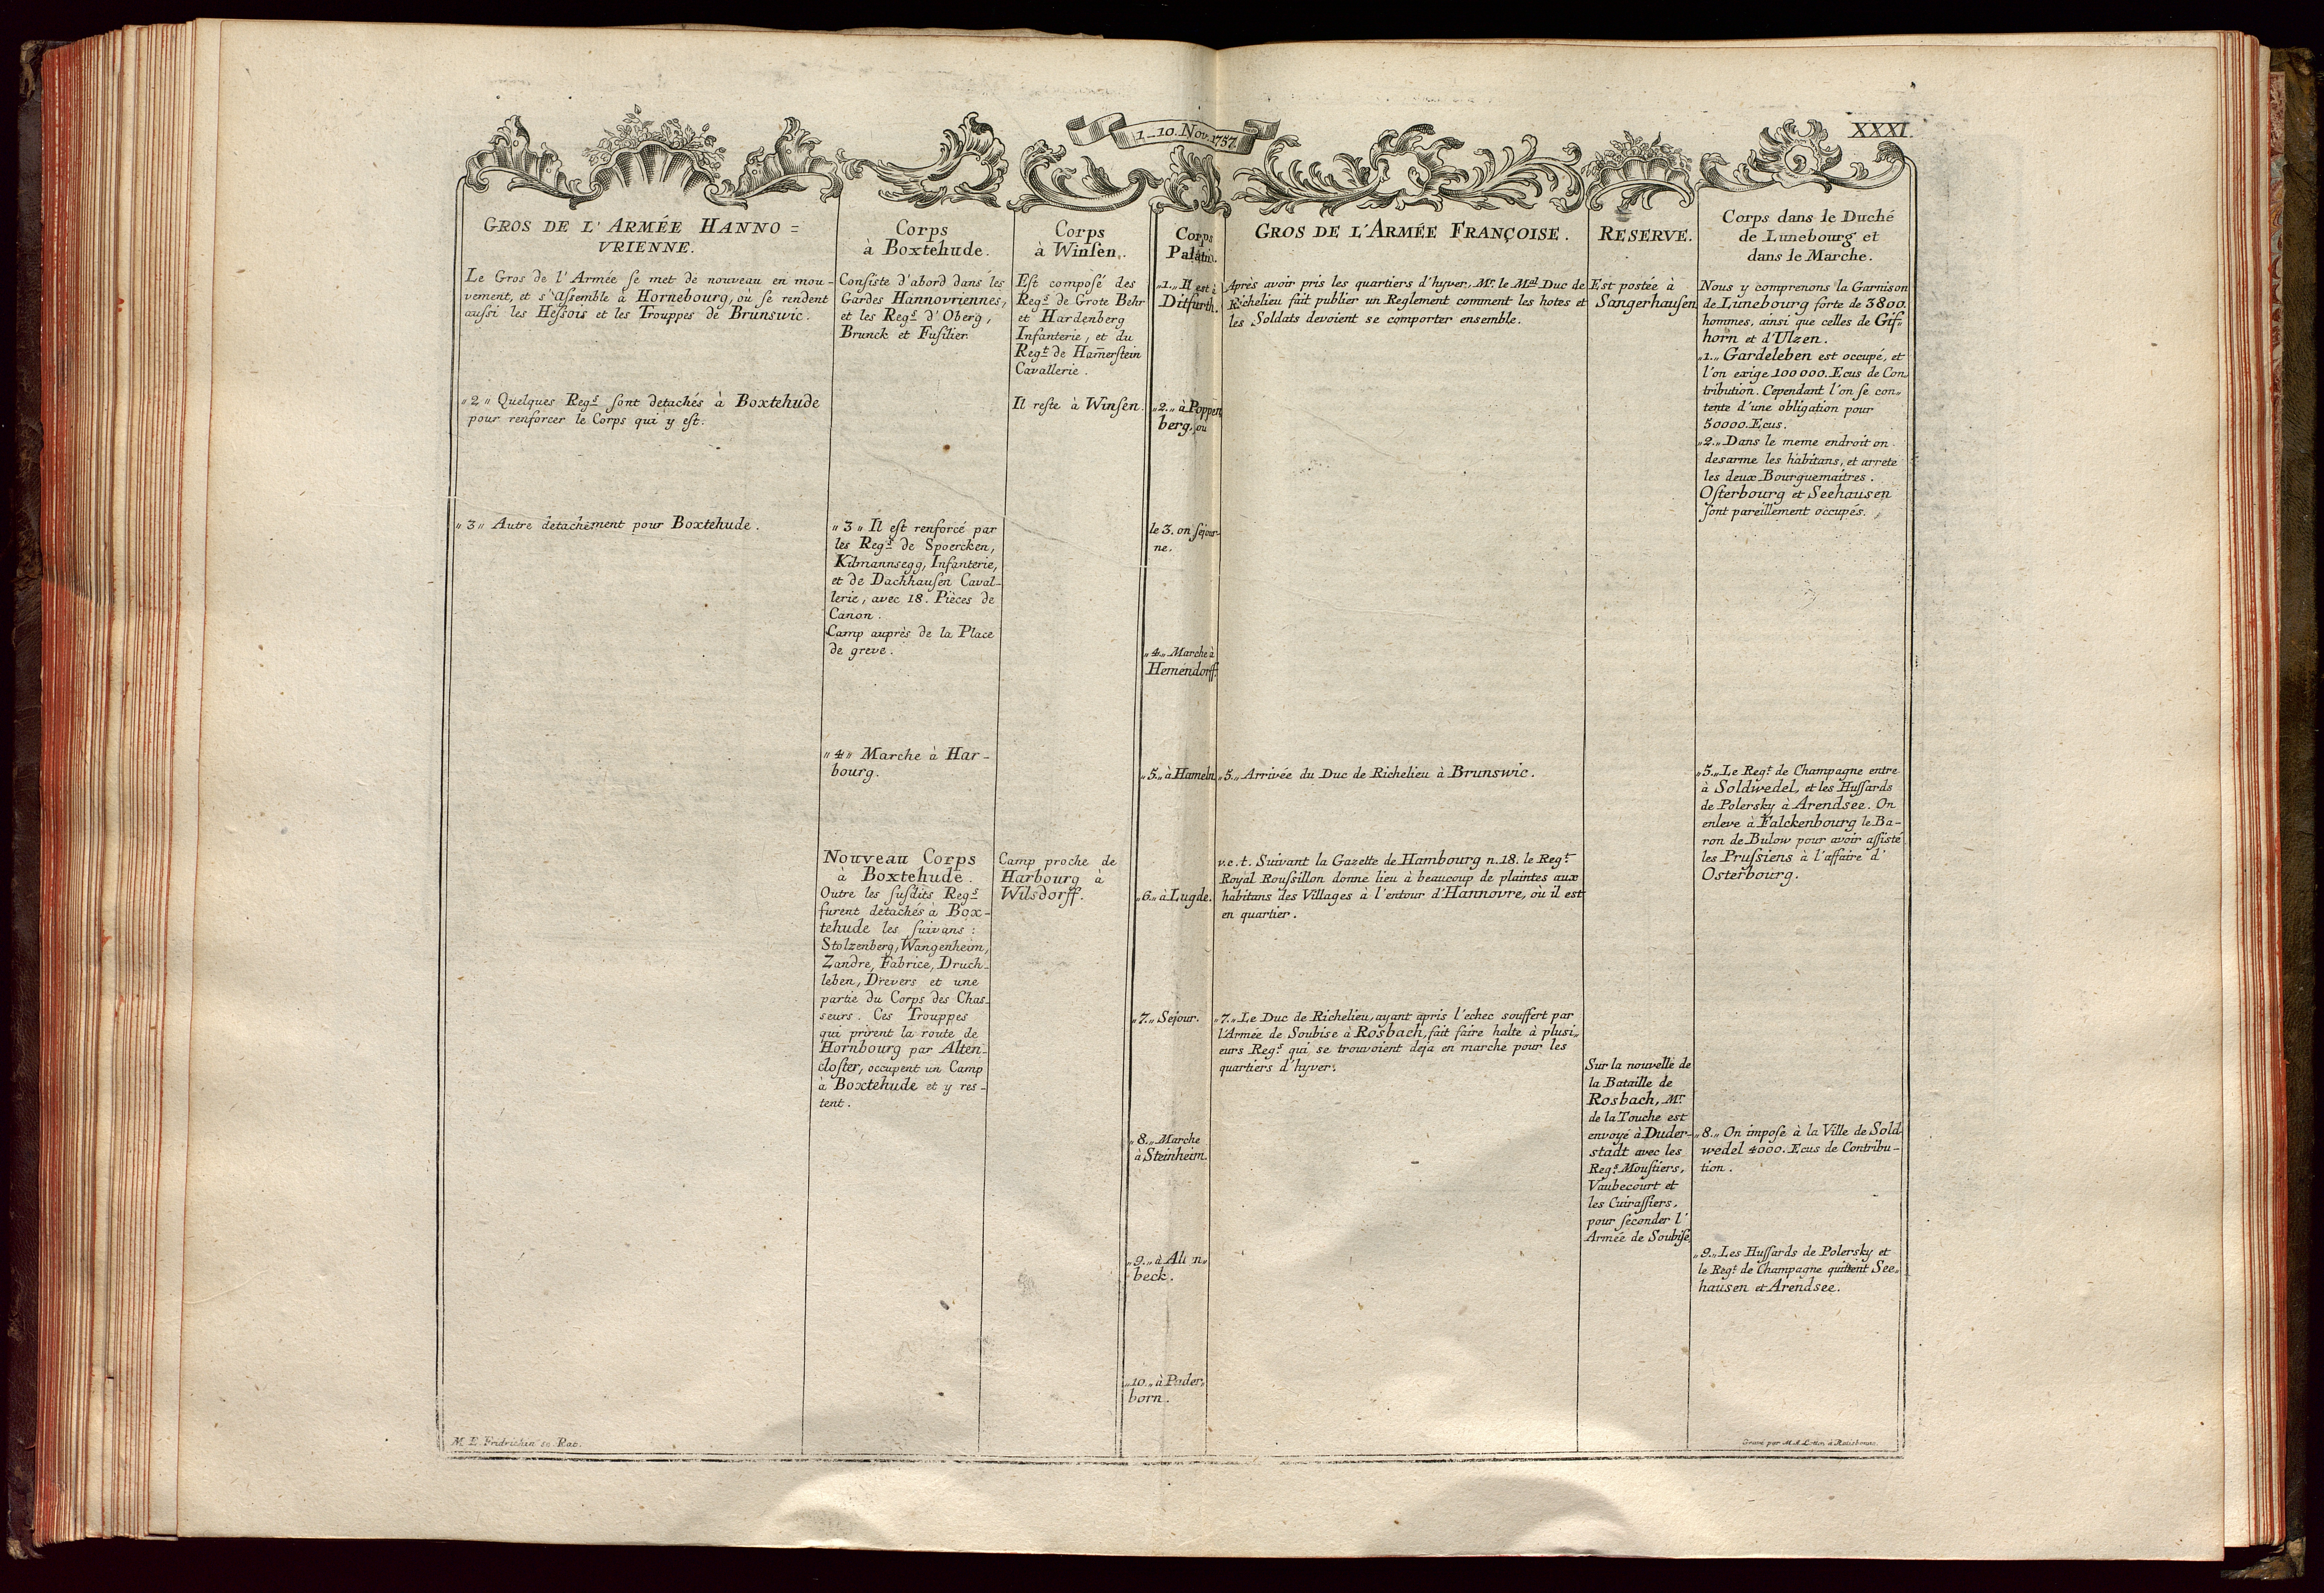 1_10. Nov. 1757.
XXXI.
GROS DE L' ARMÉE HANNO=
VRIENNE.
Le Gros de l' Armée se met de nouveau en mou-
vement, et s'assemble à Hornebourg, ou se rendent
aussi les Hessois et les Trouppes de Brunswic.
„2„ Quelques Regs sont detachés à Boxtehude
pour renforcer le Corps qui y est.
„3„ Autre detachement pour Boxtehude.
Corps
à Boxtehude.
Consiste d'abord dans les
Gardes Hannovriennes,
et les Regs d' Oberg,
Brunck et Fusilier.
„3„ Il est renforcé par
les Regs de Spoercken,
Kilmannsegg, Infanterie,
et de Dachhausen Caval-
lerie, avec 18. Pièces de
Canon.
Camp auprès de la Place
de greve.
„4„ Marche à Har-
bourg.
Nouveau Corps
à Boxtehude.
Outre les susdits Regs
furent detachés à Box-
tehude les suivans:
Stolzenberg, Wangenheim,
Zandre, Fabrice, Druch-
leben, Drevers et une
partie du Corps des Chas-
seurs. Ces Trouppes
qui prirent la route de
Hornbourg par Alten-
closter, occupent un Camp
à Boxtehude et y res-
tent.
Corps
à Winsen.
Est composé des
Regs de Grote Behr
et Hardenberg
Infanterie, et du
Regt de Ham̅erstein
Cavallerie.
Il reste à Winsen.
Camp proche de
Harbourg à
Wilsdorff.
Corps
Palatin.
„1.„ Il est à
Ditfurth.
„2.„ à Poppen
berg, ou
le 3. on sejour-
ne.
„4.„ Marche à
Hemendorff.
„5.„ à Hameln
„6.„ à Lugde.
„7.„ Sejour.
„8.„ Marche
à Steinheim.
„9.„ à
beck.
„10.„ à Pader„
born.
GROS DE L'ARMÉE FRANÇOISE.
Après avoir pris les quartiers d'hyver, Mr. le Mal Duc de
Richelieu fait publier un Reglement comment les hotes et
les Soldats devoient se comporter ensemble.
„5.„ Arrivée du Duc de Richelieu à Brunswic.
v.c.t. Suivant la Gazette de Hambourg n.18. le Regt
Royal Roussillon donne lieu à beaucoup de plaintes aux
habitans des Villages à l'entour d'Hannovre, où il est
en quartier.
„7.„ Le Duc de Richelieu, ayant apris l'echec souffert par
l'Armée de Soubise à Rosbach, fait faire halte à plusi„
eurs Regs qui se trouvoient deja en marche pour les
quartiers d'hyver.
RESERVE.
Est postée à
Sangerhausen
Sur la nouvelle de
la Bataille de
Rosbach, Mr.
de la Touche est
envoyé à Duder-
stadt avec les
Regs Moustiers,
Vaubecourt et
les Cuirassiers,
pour seconder l'
Armée de Soubise
Corps dans le Duché
de Lunebourg et
dans le Marche.
Nous y comprenons la Garnison
de Lunebourg forte de 3800.
hommes, ainsi que celles de Gif„
horn et d'Ulzen.
„1.„ Gardeleben est occupé, et
l'on exige 100000. Ecus de Con„
tribution. Cependant l'on se con„
tente d'une obligation pour
50000. Ecus.
„2.„ Dans le meme endroit on
desarme les habitans, et arrete
les deux Bourguemaitres.
Osterbourg et Seehausen
sont pareillement occupés.
„5.„ Le Regt de Champagne entre
à Soldwedel, et les Hussards
de Polersky à Arendsee. On
enleve à Falckenbourg le Ba-
ron de Bulow pour avoir assisté
les Prussiens à l'affaire d'
Osterbourg.
„8.„ On impose à la Ville de Sold
wedel 4000. Ecus de Contribu-
tion.
„9.„ Les Hussards de Polersky et
le Regt de Champagne quittent See„
hausen et Arendsee.
M. E. Fridrichin sc. Rat.
Gravé par M. A. Cottin à Ratisbonne.